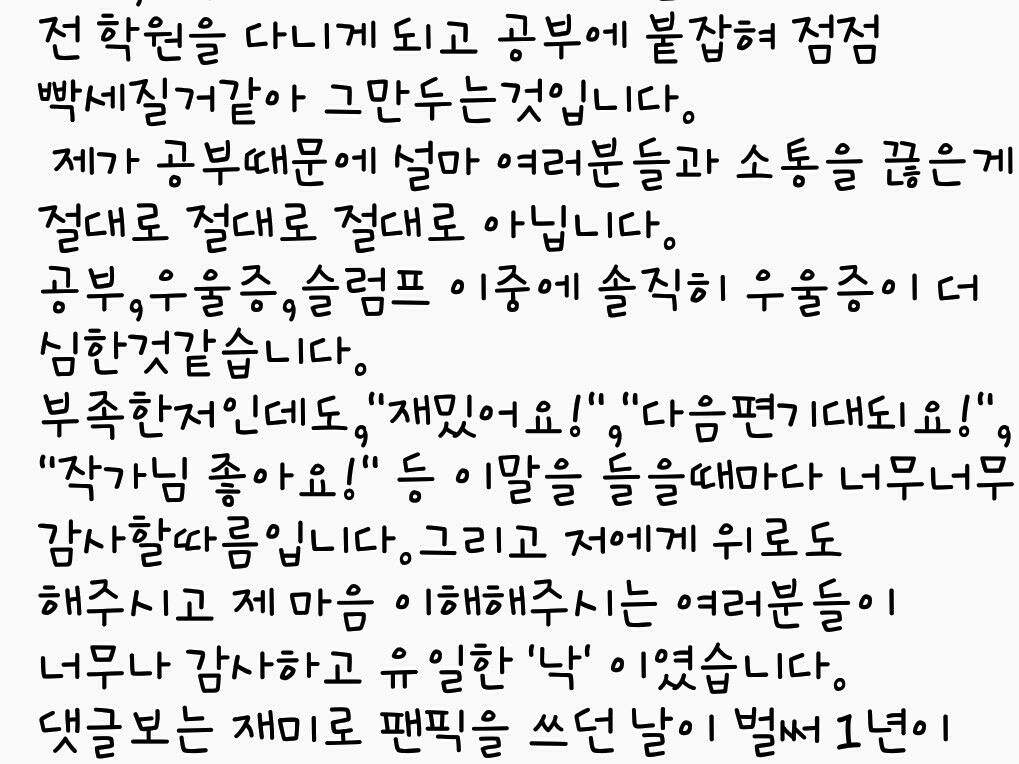 전 학원을 다니게 되고 공부에 붙잡혀 점점
빡세질거같아 그만두는것입니다.
제가 공부때문에 설마 여러분들과 소통을 끊은게
절대로 절대로 절대로 아닙니다.
공부,우울증,슬럼프 이중에 솔직히 우울증이 더
심한것같습니다.
부족한저인데도,"재밌어요!","다음편기대되요!",
"작가님 좋아요!" 등 이말을 들을때마다 너무너무
감사할따름입니다.그리고 저에게 위로도
해주시고 제 마음 이해해주시는 여러분들이
너무나 감사하고 유일한 '낙' 이였습니다.
댓글보는 재미로 팬픽을 쓰던 날이 벌써 1년이